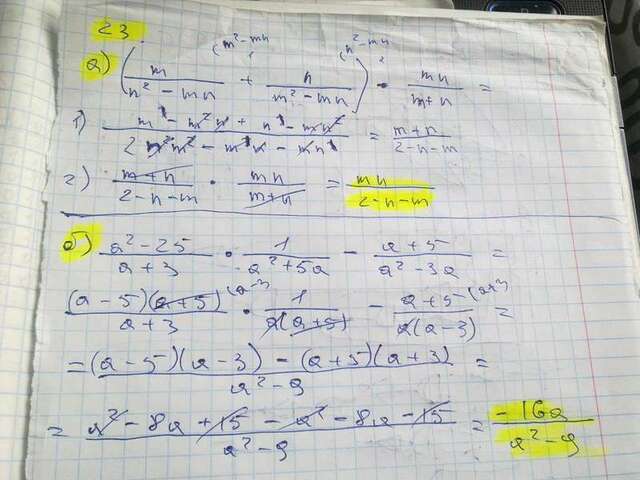 23.
a) (m/(n² - mn) (m² - mn) + n/(m² - mn) (n² - mn)) · mn/(m+n) =
1) (m³ - m²n + n³ - mn²)/(2n²m² - m³n - mn³) = (m+n)/(2-n-m)
2) (m+n)/(2-n-m) · mn/(m+n) = mn/(2-n-m)
б) (a² - 25)/(a+3) · 1/(a² + 5a) - (a+5)/(a² - 3a) =
(a-5)(a+5) (a-3)/(a+3) · 1/(a(a+5)) - (a+5) (a+3)/(a(a-3)) =
= ((a-5)(a-3) - (a+5)(a+3))/(a² - 9) =
= (a² - 8a + 15 - a² - 8a - 15)/(a² - 9) = -16a/(a² - 9)